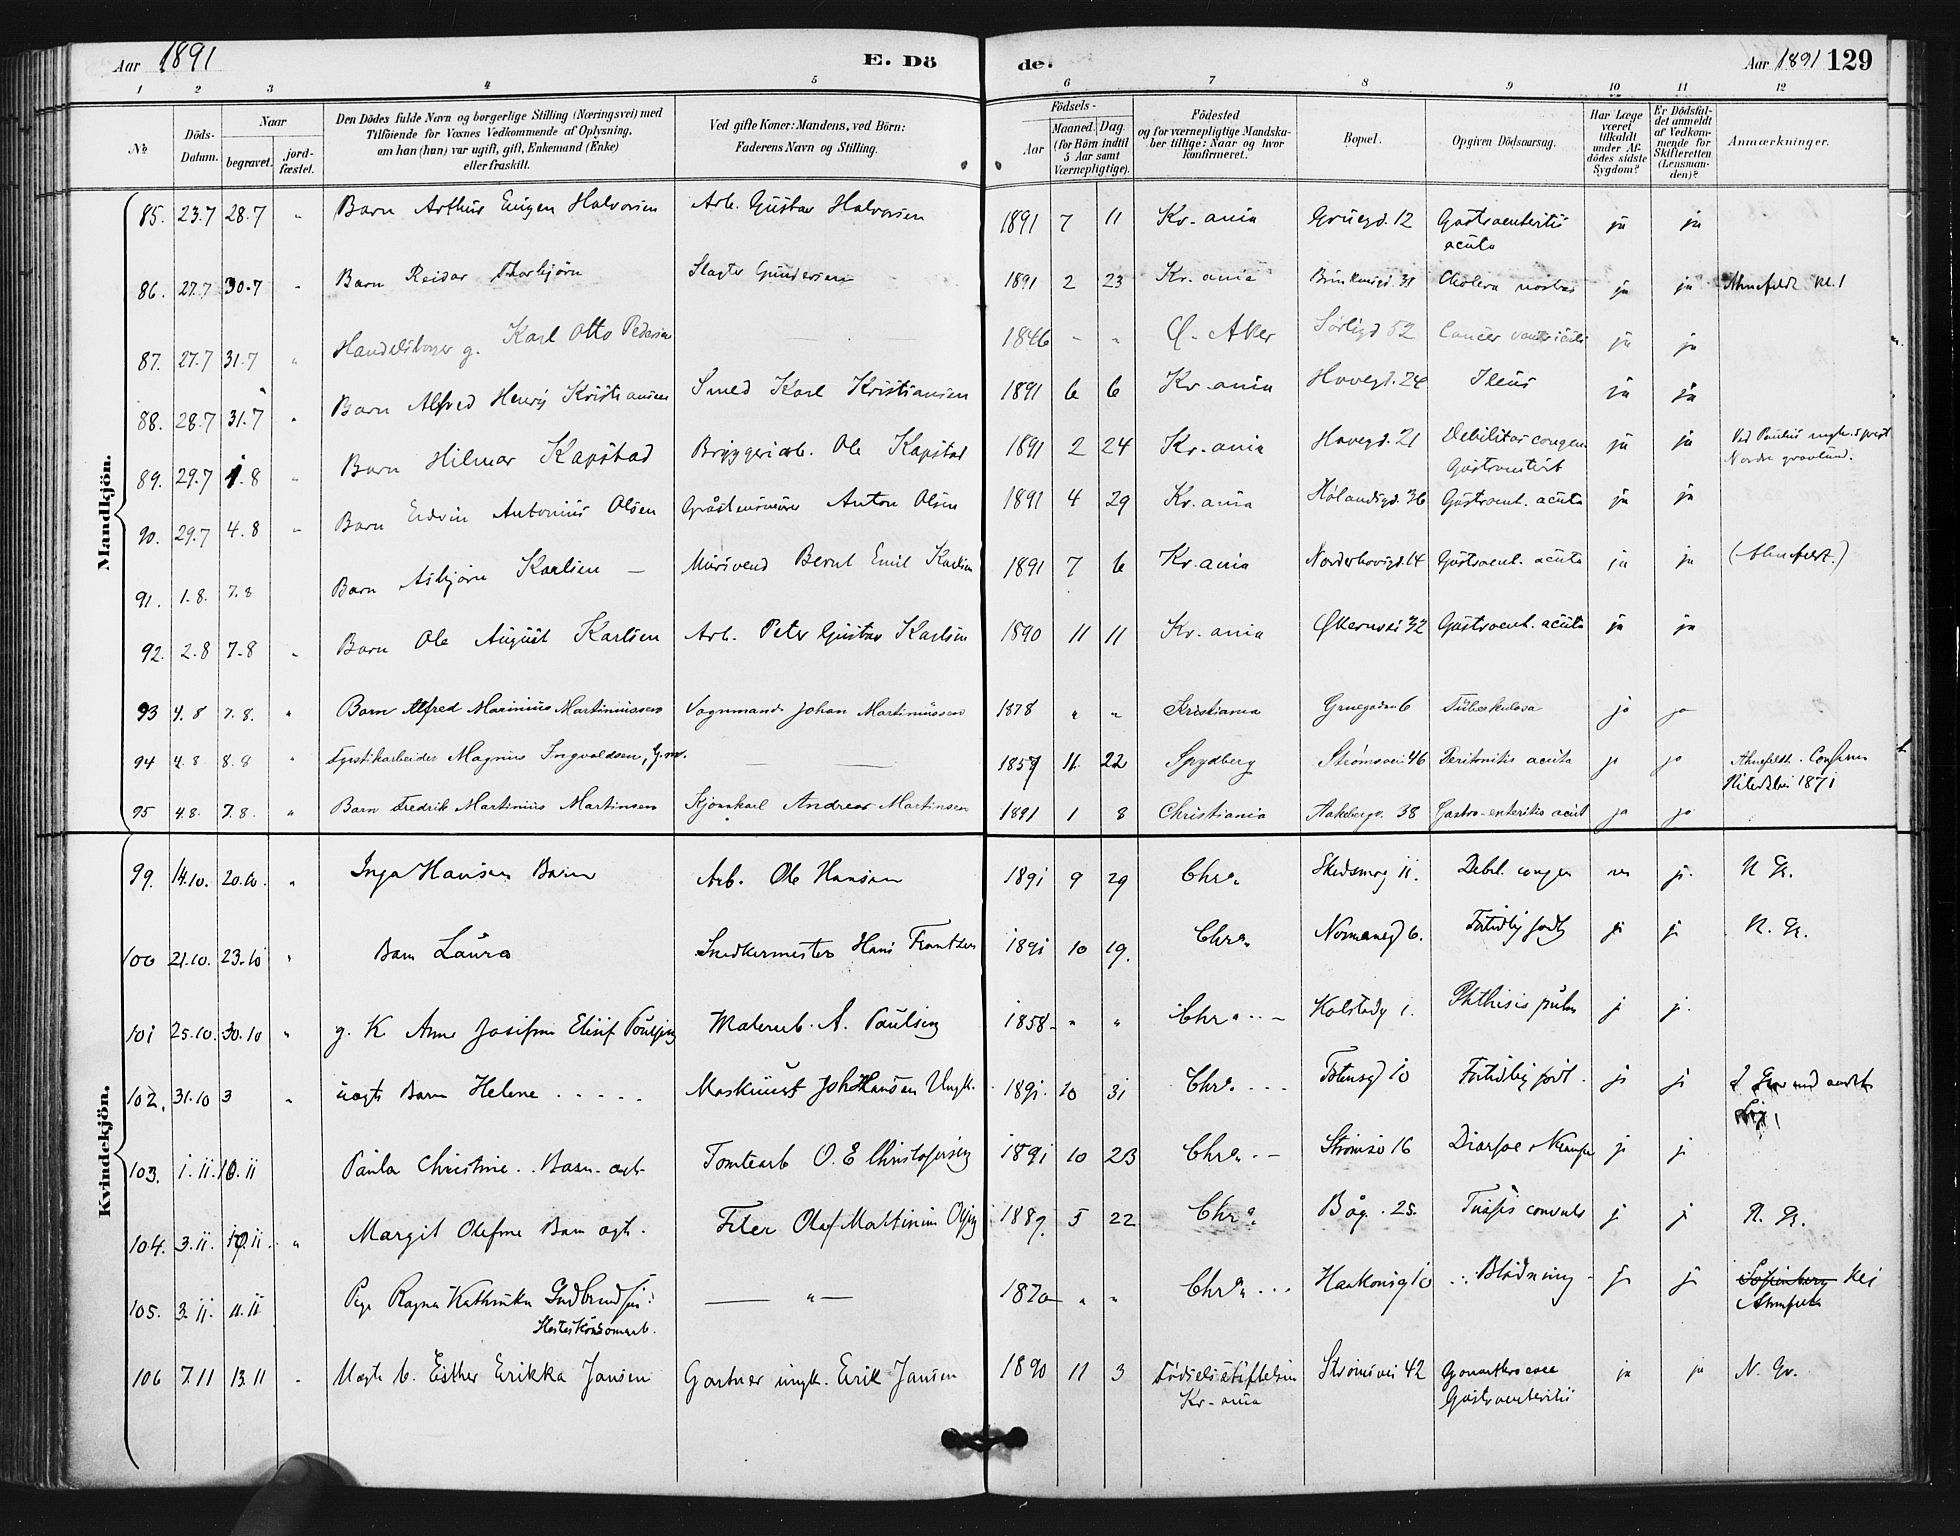 Aar 1891 E. Dö de. Aar 1891 129
1 2 3 4 5 6 7 8 9 10 11 12
№ Döds-Datum. Naar begravet. jord-fæstet. Den Dödes fulde Navn og borgerlige Stilling (Næringsvei) med Tilföiende for Voxnes Vedkommende af Oplysning, om han (hun) var ugift, gift, Enkemand (Enke) eller fraskilt. Ved gifte Koner: Mandens, ved Börn: Faderens Navn og Stilling. Födsels- Aar Maaned. Dag (for Börn indtil 5 Aar samt Værnepligtige). Födested og for værnepligtige Mandska-ber tillige: Naar og hvor konfirmeret. Bopæl. Opgiven Dödsaarsag. Har Læge været tilkaldt under Af-dödes sidste Sygdom? Er Dödsfal-det anmeldt af Vedkom-mende for Skifteretten (Lensman-den)? Anmærkninger.
Mandkjön.
85. 23.7 28.7 " Barn Arthur Eugen Halvorsen Arb. Gustav Halvorsen 1891 7 11 Kr.ania Gruegd. 12 Gastroenteritis acuta ja ja
86. 27.7 30.7 " Barn Reidar Thorbjörn Slagter Gundersen 1891 2 23 Kr.ania 31 Cholera nostras ja ja Ahnefeldt kl. 1
87. 27.7 31.7 " g. Karl Otto Pedersen 1846 " " Ø. Aker Sørligd 52 Cancer ventriculi ja ja
88. 28.7 31.7 " Barn Alfred Henry Kristiansen Smed Karl Kristiansen 1891 6 6 Kr.ania Hovegd. 24 Ileus ja ja
89. 29.7 1.8 " Barn Hilmar Kapstad Bryggeriarb. Ole Kapstad 1891 2 24 Kr.ania Hovegd. 21 Debilitas congen. Gastroenterit ja ja Ved Paulus Nordre gravlund.
90. 29.7 4.8 " Barn Edvin Antonius Olsen Gråstensmurer Anton Olsen 1891 4 29 Kr.ania Hølandsgd. 36 Gastroent. acuta ja ja
91. 1.8. 7.8 Barn Asbjørn Karlsen — Mursvend Bernt Emil Karlsen 1891 7 6 Kr.ania Norderhovsgd. 14 Gastroent. acuta ja ja (Ahnefeldt.)
92. 2.8 7.8 " Barn Ole August Karlsen Arb. Peter Gustav Karlsen 1890 11 11 Kr.ania Økernvei 32 Gastroent. acuta ja ja
93 4.8 7.8. " Barn Alfred Marinius Martinussen Vognmand Johan Martinussen 1878 " " Kristiania Gruegaden 6 Tuberkulosa ja ja
94 4.8 8.8 " Magnus Ingvaldsen, G.m. 1857 11. 22 Spydberg Strømsvei 46 Peritonitis acuta ja ja Ahnefeldt. 1871
95 4.8. 7.8. " Barn Fredrik Martinius Martinsen Kjørekarl Andreas Martinsen 1891 1 8 Christiania Hakebergv. 38 Gastro-enteritis acut ja ja
Kvindekjön.
99. 14.10. 20.10. " Inga Hansen Barn Arb. Ole Hansen 1891 9 29 Chra. Skedsmog 11. Debil. congen nei ja N. Gr.
100 21.10. 23.10 " Barn Laura Snedkermester Hans Frantzen 1891 10 19. Chra. Normanngd 6. Fortidlig født ja ja N. Gr.
101 25.10. 30.10 " g. K. Anne Josefine Elisif Poulsen Malerarb. A. Paulsen 1858 " " Chra. Kolstadg 1. Phthisis pulm ja ja.
102. 31.10 3 " uægte Barn Helene Maskinist Joh Hansen Ungk. 1891. 10 31 Chra. Totensgd 10 Fortidlig født. ja ja
103. 1.11. 10.11 Paula Christine Barn ægt Tomtearb O. E Christofersen 1891 10 23 Chra. Strømsv 16 Diarrhoe ja ja
104. 3.11. 10.11. " Margit Olefine Barn ægt. Filer Olaf Martinius Olsen 1889. 5 22 Chra. Bøg. 25. Tussis convuls ja ja N. Gr.
105. 3.11. 11.11 Pige Ragna Kathinka Gudbrandsen — " — 1870 " " Chra. Haakonsg 10 Blødning ja ja
106 7.11 13.11 " Uægte b. Esther Erikka Jansen Gartner ungk. Erik Jansen 1890 11 3 Fødselsstiftelsen Kr.ania Strømsvei 42 Gastroenteritis ja ja N. Gr.